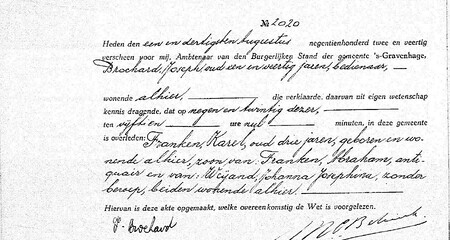 № 2020
Heden den een en dertigsten Augustus negentienhonderd twee en veertig
verscheen voor mij, Ambtenaar van den Burgerlijken Stand der gemeente 's-Gravenhage,
Brochard, Joseph, oud een en veertig jaren, bedienaar,
wonende alhier, die verklaarde, daarvan uit eigen wetenschap
kennis dragende, dat op negen en twintig dezer,
ten vijf en ure nul minuten, in deze gemeente
is overleden: Franken, Karel, oud drie jaren, geboren en wo-
nende alhier, zoon van: Franken, Abraham, anti-
quair en van: Weijand, Johanna Josephina, zonder
beroep, beiden wonende alhier.
Hiervan is deze akte opgemaakt, welke overeenkomstig de Wet is voorgelezen.
P. Brochard